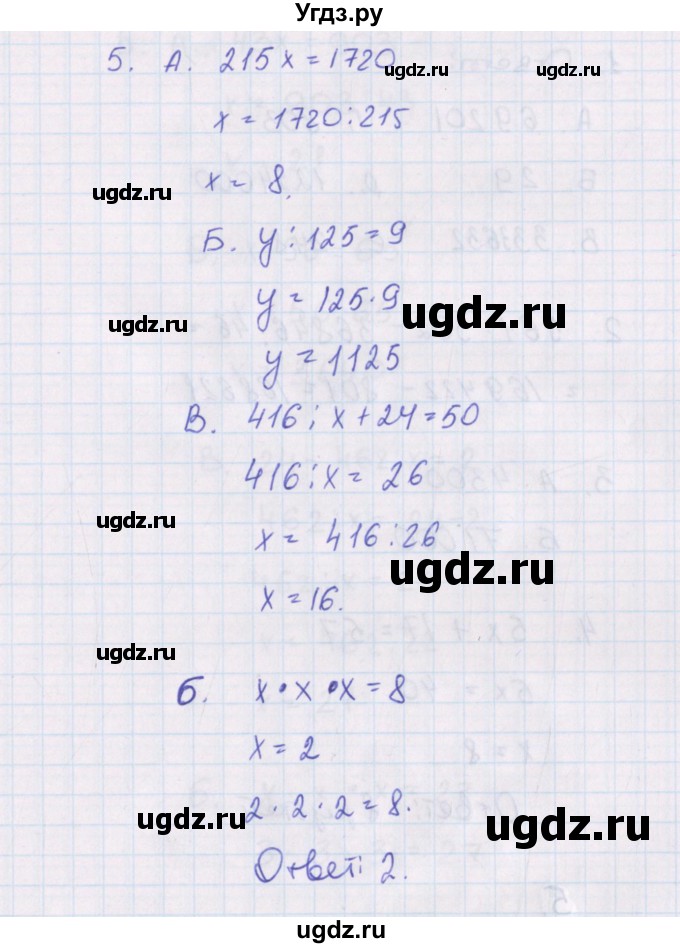 Угдз.ру
5. А. 215x = 1720
ugdz.ru ugdz.ru
x = 1720:215
ugdz.ru x = 8. ugdz.ru
Б. y : 125 = 9
ugdz.ru y = 125·9 ugdz.ru
y = 1125
В. 416 : x + 24 = 50
416 : x = 26
ugdz.ru x = 416:26 ugdz.ru
x = 16.
ugdz.ru
6. x·x·x = 8
x = 2
ugdz.ru 2·2·2 = 8. ugdz.ru
Ответ: 2.
ugdz.ru